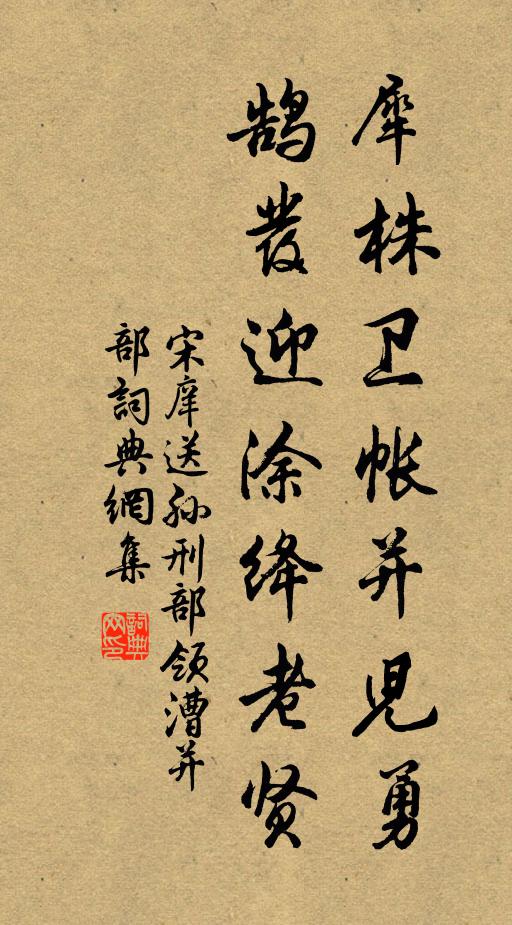 犀株卫帐并児勇
鹄發迎涂绛老贤
宋庠送孙刑部领漕并
部詞典網集
詞典網印